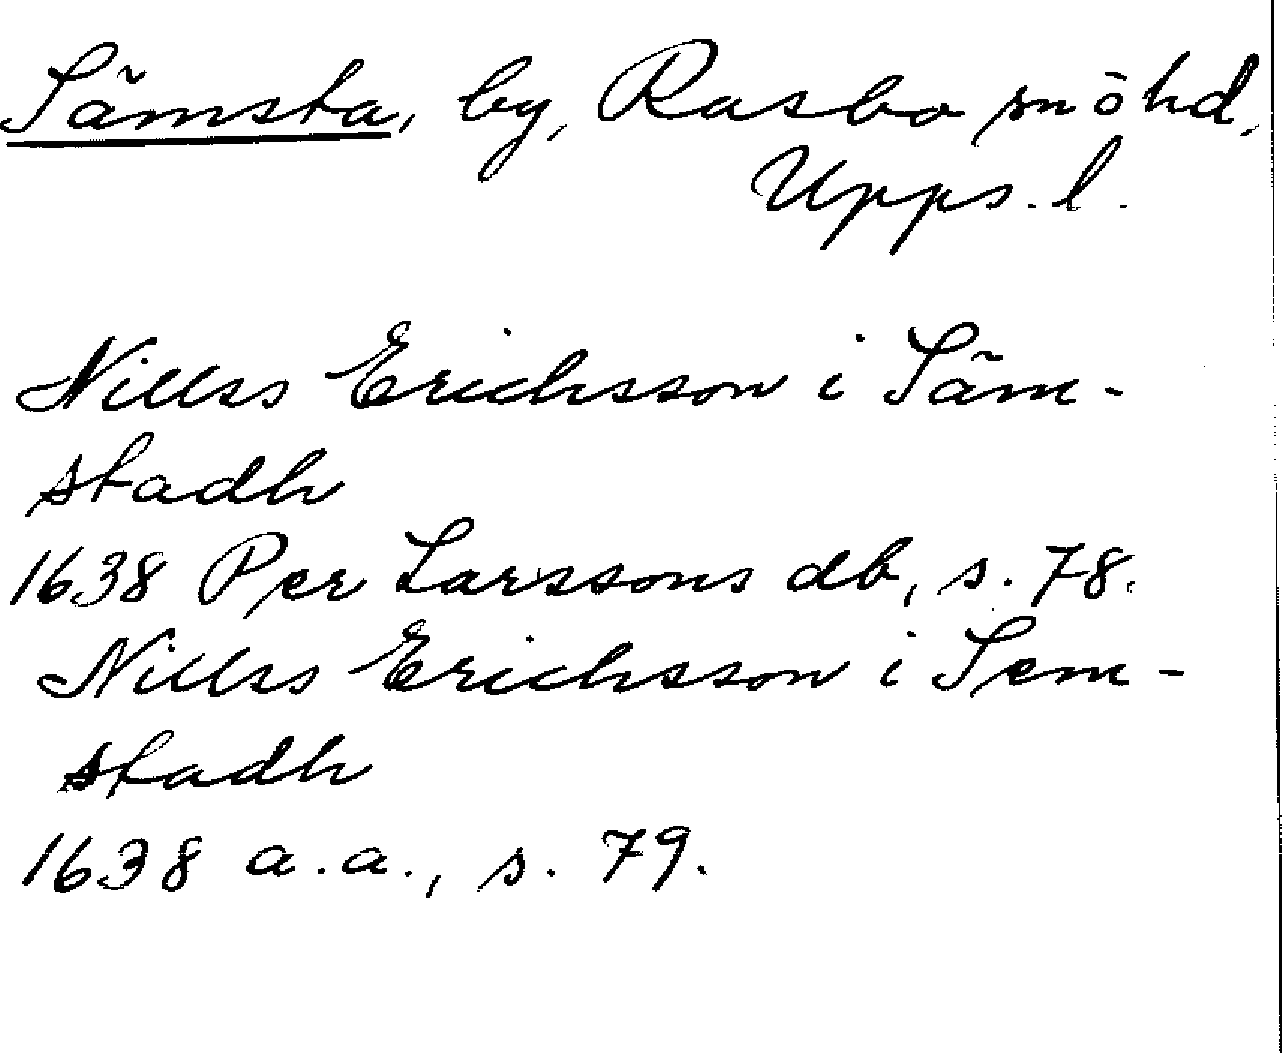 Sämsta, by, Rasbo sn ō hd,
Upps. l.
Nillss Erichsson i Säm-
stadh
1638 Per Larssons db, s. 78.
Nillss Erichsson i Sem-
stadh
1638 a.a., s. 79.